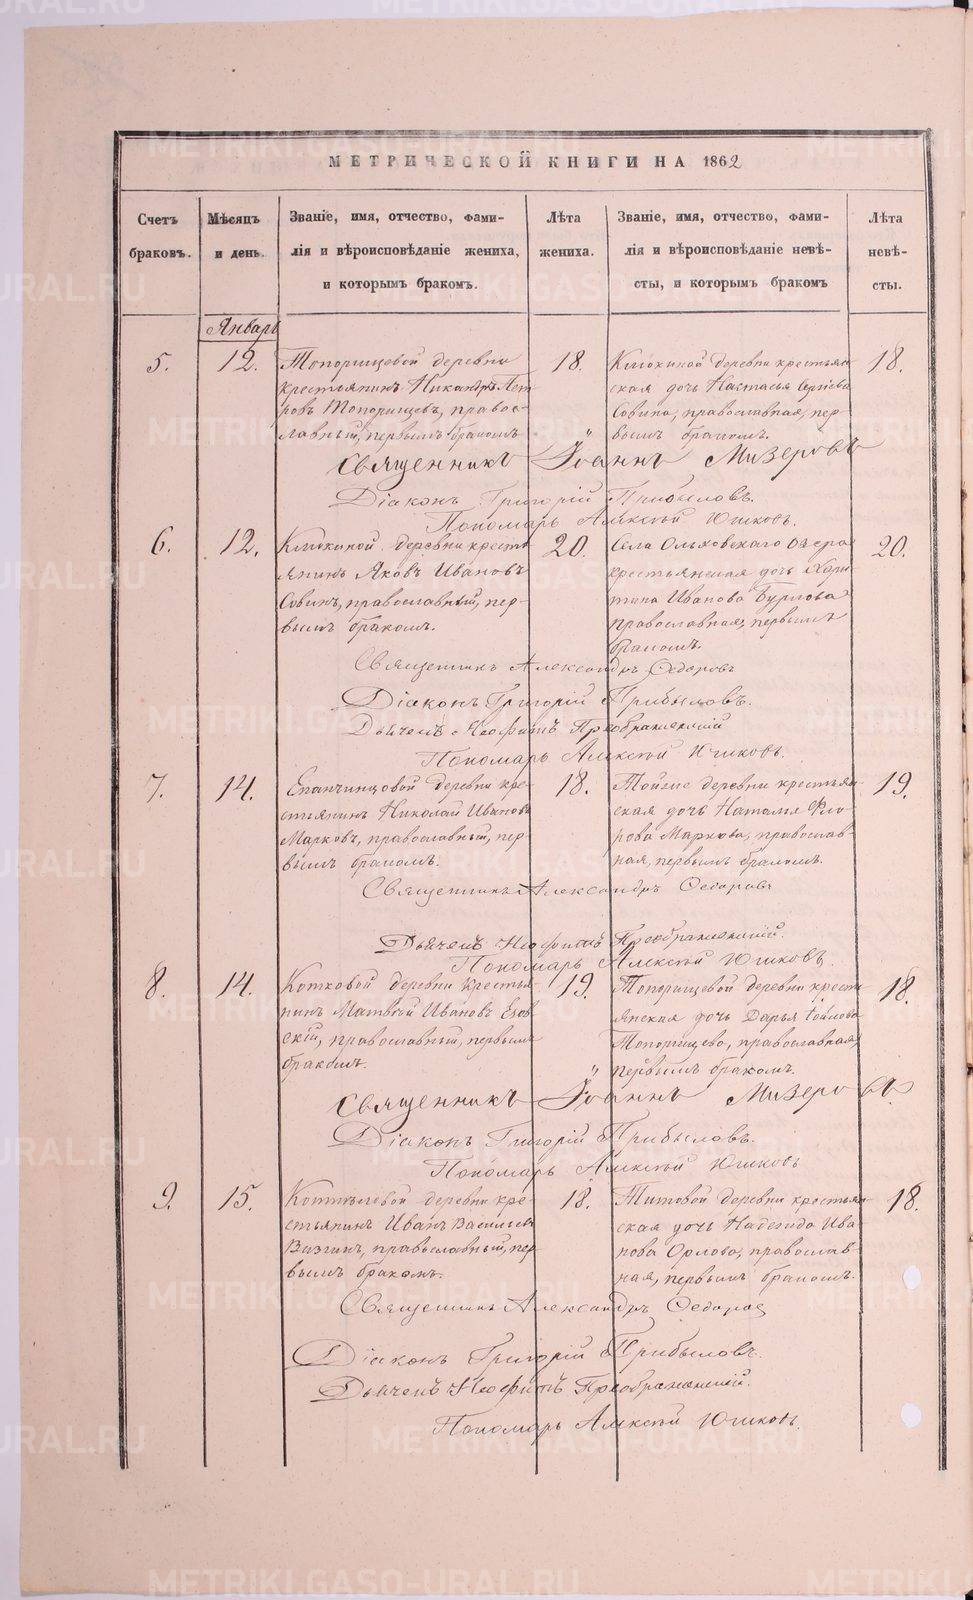 МЕТРИЧЕСКОЙ КНИГИ НА 1862
Счетъ
браковъ.
Мѣсяцъ
и день.
Званіе, имя, отчество, фами-
лія и вѣроисповѣданіе жениха,
и которымъ бракомъ.
Лѣта
жениха.
Званіе, имя, отчество, фами-
лія и вѣроисповѣданіе невѣ-
сты, и которымъ бракомъ
Лѣта
невѣ-
сты.
Январь
5.
12.
Топорищевой деревни
крестьянинъ Никандръ Пет
ровъ Топорищевъ, правос-
лавный, первымъ бракомъ
18.
Клюкиной деревни крестьян
ская дочь Настасья Сергѣева
Совина, православная, пер-
вымъ бракомъ.
18.
Священникъ Іоаннъ Мизеровъ
Діаконъ Григорій Прибыловъ.
Пономарь Алексѣй Юшковъ.
6.
12.
Клюкиной деревни кресть
янинъ Яковъ Ивановъ
Совинъ, православный, пер-
вымъ бракомъ.
20.
Села Ольховскаго Озера
крестьянская дочь Хари
тина Иванова Бурлова
православная, первымъ
бракомъ.
20.
Священникъ Александръ Ѳедоровъ
Діаконъ Григорій Прибыловъ.
Дьячекъ Неофитъ Преображенскій
Пономарь Алексѣй Юшковъ.
7.
14.
Епанчинцовой деревни кре-
стьянинъ Николай Ивановъ
Марковъ, православный, пер-
вымъ бракомъ.
18.
деревни крестьян
ская дочь Наталья Фло-
рова Маркова, православ-
ная, первымъ бракомъ.
19.
Священникъ Александръ Ѳедоровъ
Дьячекъ Неофитъ Преображенскій.
Пономарь Алексѣй Юшковъ.
8.
14.
Котковой деревни крестья-
нинъ Матвѣй Ивановъ Езов
скій, православный, первымъ
бракомъ.
19.
Топорищевой деревни кресть
янская дочь Дарья
Топорищева, православная,
первымъ бракомъ.
18.
Священникъ Іоаннъ Мизеровъ
Діаконъ Григорій Прибыловъ.
Пономарь Алексѣй Юшковъ
9.
15.
деревни кре-
стьянинъ Иванъ Васильевъ
Вазгинъ, православный, пер
вымъ бракомъ.
18.
Титовой деревни крестьян
ская дочь Надежда Ива
нова Орлова, православ-
ная, первымъ бракомъ.
18.
Священникъ Александръ Ѳедоровъ
Діаконъ Григорій Прибыловъ.
Дьячекъ Неофитъ Преображенскій.
Пономарь Алексѣй Юшковъ.
METRIKI.GASO-URAL.RU